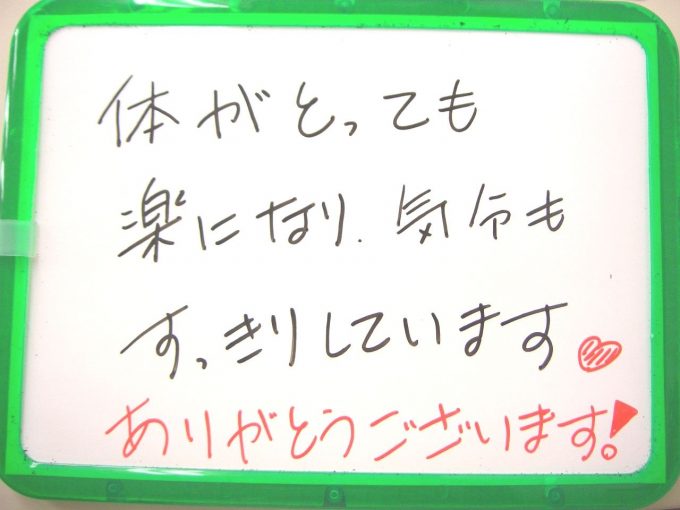 体がとっても
楽になり、気分も
すっきりしています♥
ありがとうございます!